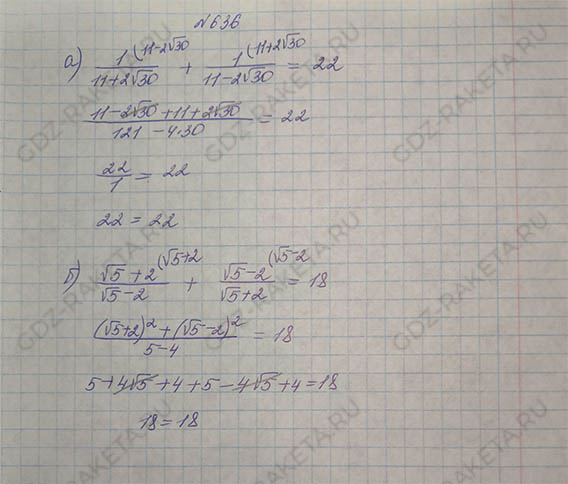 №636
а) 1(11-2√30 / 11+2√30 + 1(11+2√30 / 11-2√30 = 22
11-2√30+11+2√30 / 121-4·30 = 22
22/1 = 22
22 = 22
б) √5+2(√5+2 / √5-2 + √5-2(√5-2 / √5+2 = 18
(√5+2)²+(√5-2)² / 5-4 = 18
5+4√5+4+5-4√5+4=18
18=18
GDZ-RAKETA.RU
GDZ-RAKETA.RU
GDZ-RAKETA.RU
GDZ-RAKETA.RU
GDZ-RAKETA.RU
GDZ-RAKETA.RU